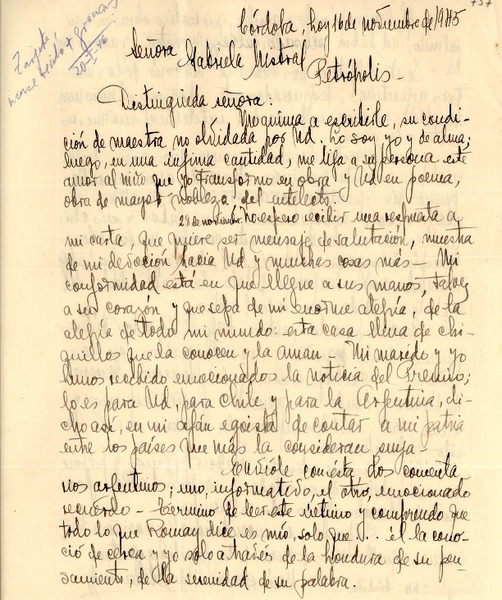 757
Córdoba, hoy 16 de noviembre de 1945
Señora
Gabriela Mistral
Petrópolis -
Tarjeta
gracias
20 46
Distinguida señora:
Me anima a escribirle, su condi-
ción de maestra no olvidada por Ud. Lo soy yo y de alma;
luego, en una ínfima cantidad, me liga a su persona este
amor al niño que yo transformo en obra y Ud en poema,
obra de mayor nobleza del intelecto.
28 de noviembre. No espero recibir una respuesta a
mi carta, que quiere ser mensaje de salutación, muestra
de mi devoción hacia Ud y muchas cosas más - Mi
conformidad está en que llegue a sus manos, talvez
a su corazón y que sepa de mi enorme alegría, de la
alegría de todo mi mundo: esta casa llena de chi-
quillos que la conocen y la aman - Mi marido y yo
hemos recibido emocionados la noticia del Premio;
lo es para Ud, para Chile y para la Argentina, di-
cho así, en mi afán egoísta de contar a mi patria
entre los países que más la consideran suya -
Envíole con ésta dos comenta
rios argentinos; uno, informativo, el otro, emocionado
recuerdo - Termino de leer este último y comprendo que
todo lo que Roman dice es mío, solo que... él la cono-
ció de cerca y yo solo a través de la hondura de su pen-
samiento, de la serenidad de su palabra.